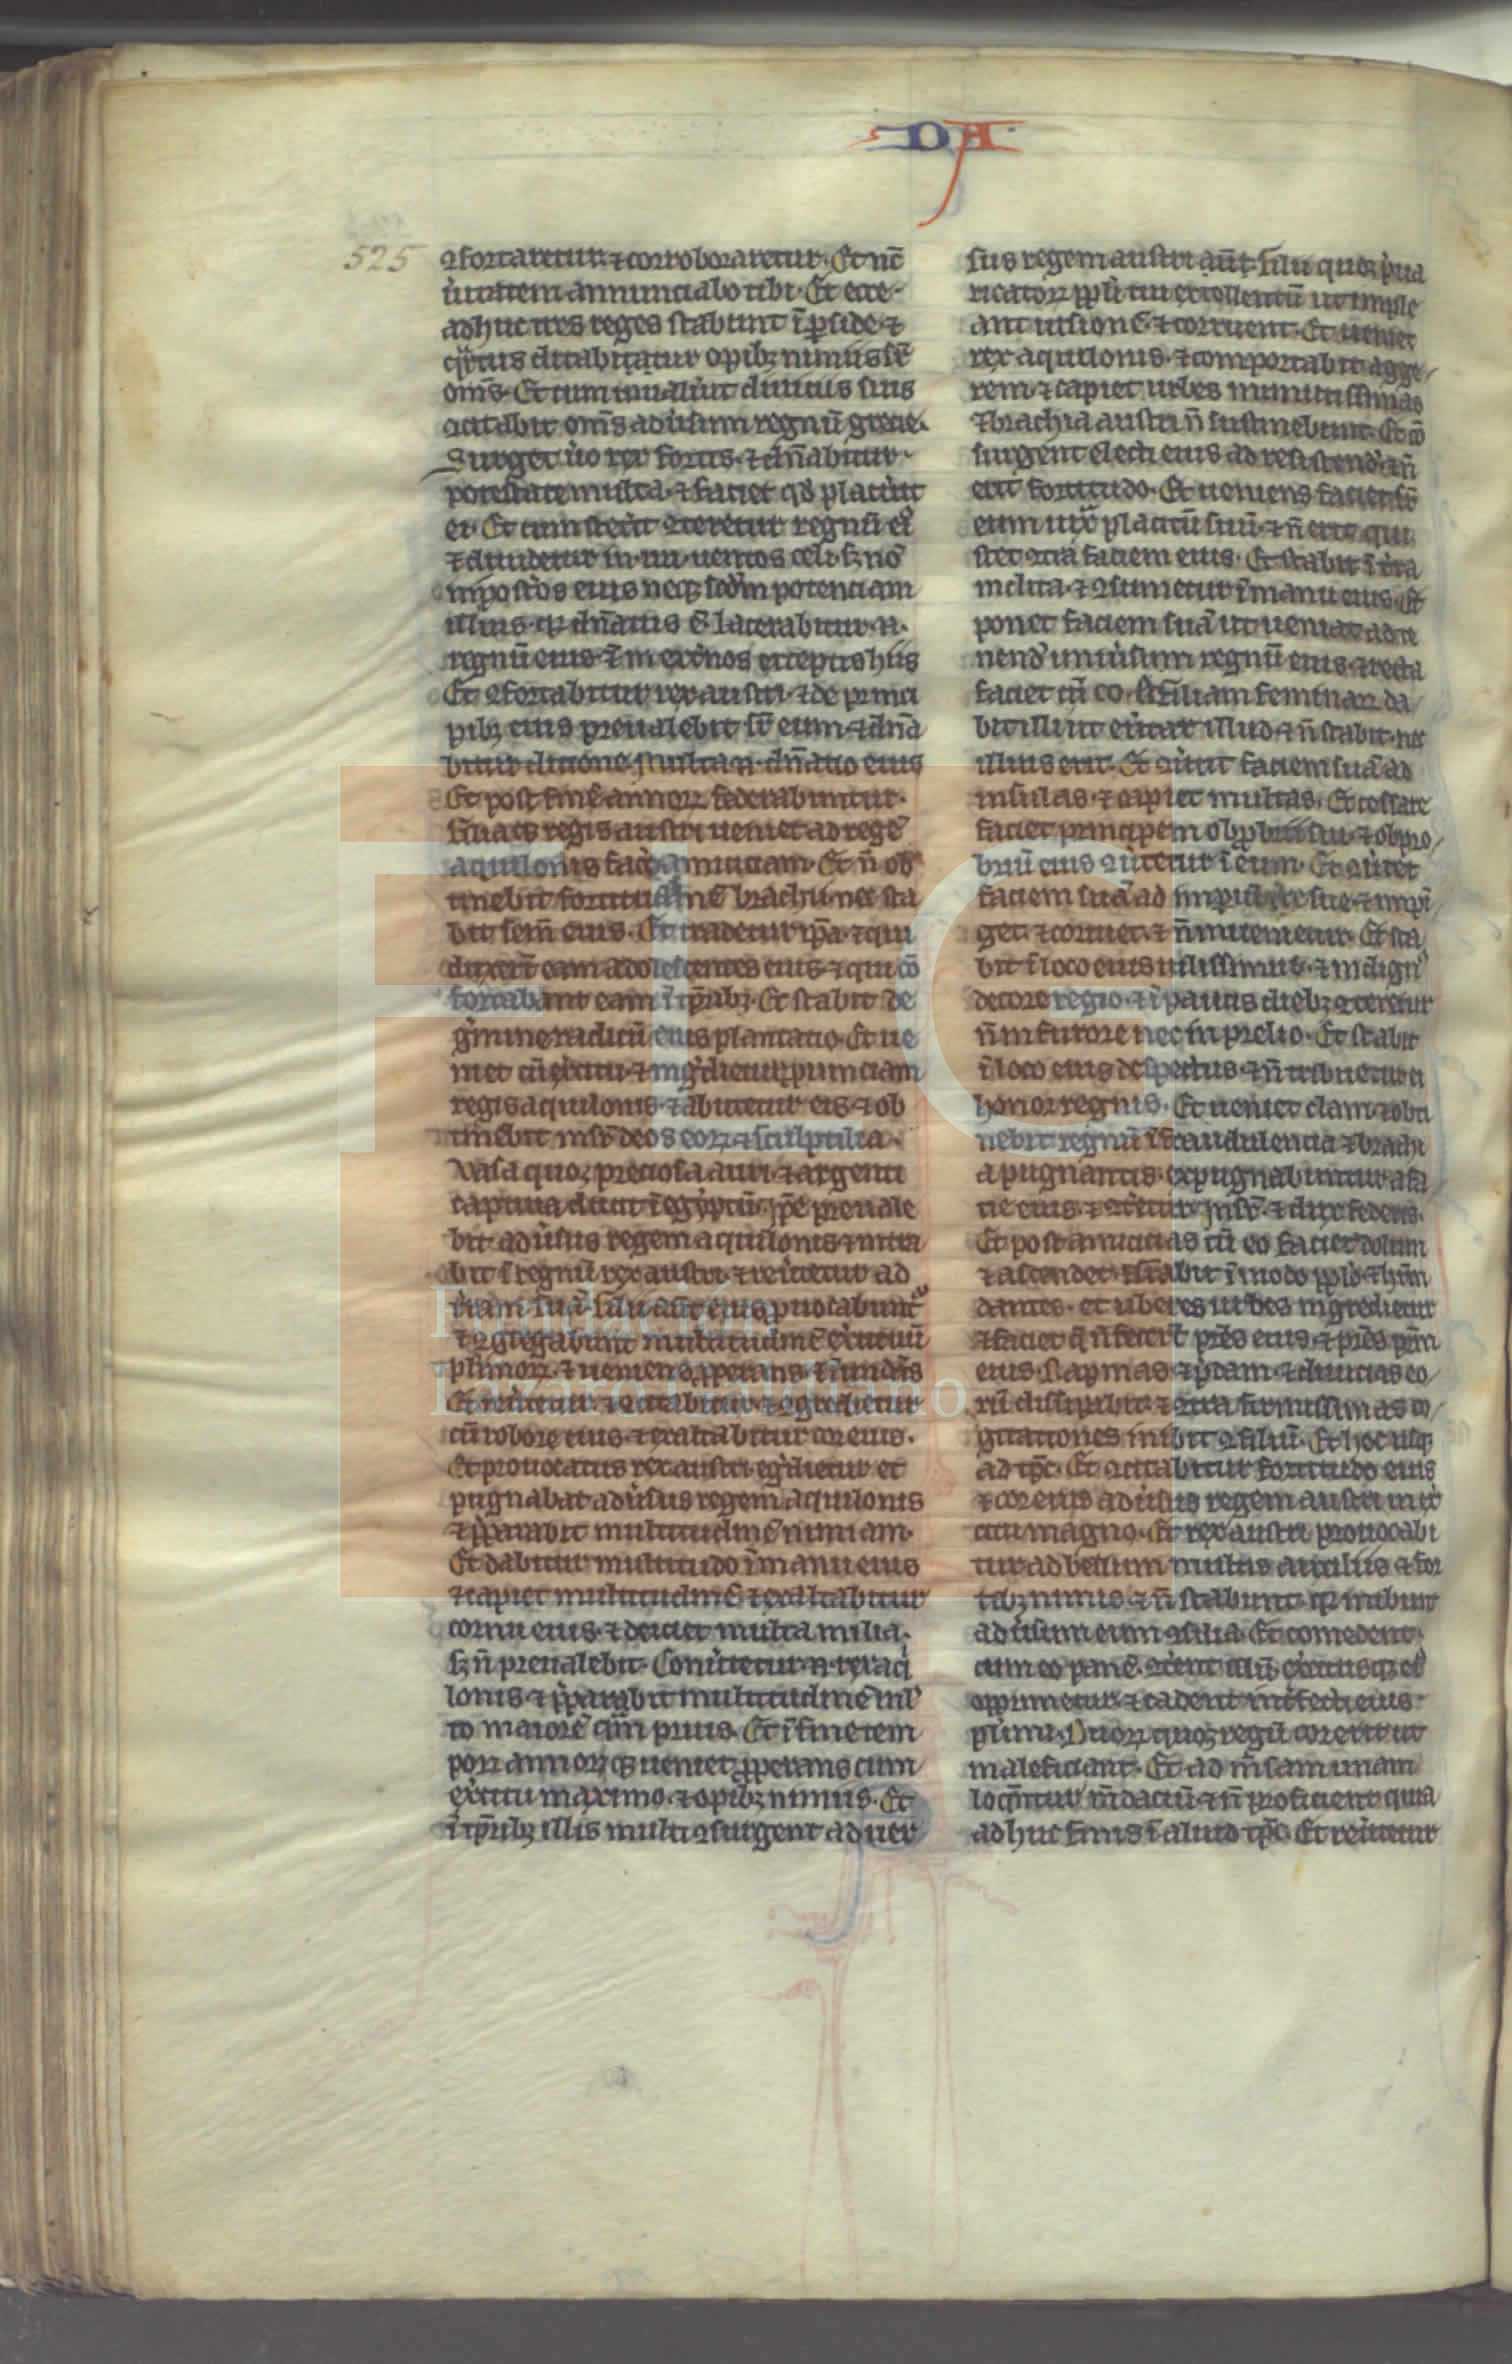 DA
525
ꝯfortaretur ⁊ corroboraretur. Et nc̄
u̾itatem annunciabo tibi. Et ecce
adhuc tres reges stabunt ī ꝑside ⁊
q̾rtus ditabitur opibꝫ nimiis sr̄
om̄s. Et cum inualu̾it diuiciis suis
ꝯcitabit om̄s adu̾sum regnū grecie.
Surget u̾o rex fortis ⁊ dn̄abitur
potestate multa ⁊ faciet qd̾ placu̾it
ei. Et cum stet̾it ꝯteretur regnū ei᾽
⁊ diuidetur in .iiii. uentos celi. sꝫ nō
in post̾os eius neqꝫ scd̾m potenciam
illius. qua dn̄atus ē. lacerabitur .n.
regnū eius ⁊ in ext̾nos exceptis hiis
Et ꝯfortabitur rex austri ⁊ de princi
pibꝫ eius preualebit sr̄ eum ⁊ dn̄a
bitur dicione. multa .n. dn̄atio eius
Et post finē annoꝝ federabuntur.
filiaqꝫ regis austri ueniet ad regē
aquilonis fac̾e amiciciam. Et n̄ ob
tinebit fortitudinē brachii. nec sta
bit sem̄ eius. Et tradetur ip̄a ⁊ qui
duxer̄t eam adolescentes eius ⁊ qui cō
fortabant eam ī tp̄ribꝫ. Et stabit de
g̾mine radicū eius plantatio. Et ue
niet cū ex̾citu ⁊ ing̾dietur prouinciam
regis aquilonis ⁊ abutetur eis ⁊ ob
tinebit insr̄ deos eoꝝ ⁊ sculptilia.
Vasa quoqꝫ preciosa auri ⁊ argenti
captiua ducet ī egyptū. ip̄e preuale
bit adu̾sus regem aquilonis ⁊ intra
bit ī regnū rex austri ⁊ reu̾tetur ad
t̾ram suā. filii aūt eius prouocabunt᾽
⁊ ꝯgregabunt multitudinē ex̾cituū
plurimoꝝ. ⁊ ueniet properans ⁊ īundās
Et reu̾tetur ⁊ ꝯcitabitur ⁊ ꝯgredietur
cū robore eius ⁊ exaltabitur cor eius.
Et prouocatus rex austri eg̾dietur et
pugnabat adu̾sus regem aquilonis
⁊ p̾parabit multitudinē nimiam.
Et dabitur multitudo ī manu eius
⁊ capiet multitudinē ⁊ exaltabitur
cornu eius ⁊ deiciet multa milia.
sꝫ n̄ preualebit. Conu̾tetur .n. rex aq̾
lonis ⁊ p̾parabit multitudinē ml̾
to maiorē q̾m prius. Et ī fine tem
poꝝ annoꝝqꝫ ueniet properans cum
ex̾citu maximo ⁊ opibꝫ nimiis. Et
ī tp̄ribꝫ illis multi ꝯsurgent aduer
sus regem austri aūt. filii quoqꝫ p̾ua
ricatoꝝ ppl̾i tui extollentur ut imple
ant uisionē ⁊ corruent. Et ueniet
rex aquilonis ⁊ comportabit agge
rem ⁊ capiet urbes munitissimas
⁊ brachia austri n̄ sustinebunt. Et cō
surgent electi eius ad resistend̾ ⁊ n̄
erit fortitudo. Et ueniens faciet sr̄
eum iux̾ placitū suū ⁊ n̄ erit qui
stet ꝯtra faciem eius. Et stabit ī t̾ra
inclita ⁊ ꝯsumetur ī manu eius. Et
ponet faciem suā ut ueniat ad te
nend̾ uniu̾sum regnū eius ⁊ recta
faciet cū eo. Et filiam feminaꝝ da
bit illi ut eu̾tat illud ⁊ n̄ stabit. nec
illius erit. Et ꝯu̾tet faciem suā ad
insulas ⁊ capiet multas. Et cessare
faciet principem obprobrii sui ⁊ obpro
briū eius ꝯu̾tetur ī eum. Et ꝯu̾tet
faciem suā ad impiū t̾re sue ⁊ impī
get ⁊ corruet ⁊ n̄ inuenietur. Et sta
bit ī loco eius uilissimus ⁊ indign᾽
decore regio. ⁊ ī paucis diebꝫ ꝯteretur
n̄ in furore nec in prelio. Et stabit
ī loco eius despectus ⁊ n̄ tribuetur ei
honor regnis. Et ueniet clam ⁊ obti
nebit regnū ī fraudulencia ⁊ brachi
a pugnantis expugnabuntur a fa
cie eius ⁊ ꝯt̾etur insr̄ ⁊ dux federis.
Et post amicicias cū eo faciet dolum
⁊ ascendet ⁊ supabit ī modo pplo. ⁊ habun
dantes et uberes urbes ingredietur
⁊ faciet q̄ n̄ fecer̄t pr̄es eius ⁊ pr̄es pr̄m
eius. Rapinas ⁊ p̾dam ⁊ diuicias eo
rū dissipabit ⁊ ꝯtra firmissimas co
gitationes inibit ꝯsiliū. Et hoc usqꝫ
ad tp̄c. Et ꝯcitabitur fortitudo eius
⁊ cor eius adu̾sus regem austri in ex̾
citu magno. Et rex austri prouocabi
tur ad bellum multis auxiliis ⁊ for
tibꝫ nimis ⁊ n̄ stabunt. qa inibunt
adu̾sum eum ꝯsilia. Et comedent
cum eo panē ꝯt̾ent illū. ex̾citusqꝫ ei᾽
opprimetur ⁊ cadent int̾fecti eius
pl̾imi. Duoꝝ quoqꝫ regū cor erit ut
maleficiant. Et ad m̄sam unam
loqn̄tur m̄daciū ⁊ n̄ proficient quia
adhuc finis ī aliud tp̄c. Et reu̾tetur
FLG
Fundación
Lázaro Galdiano